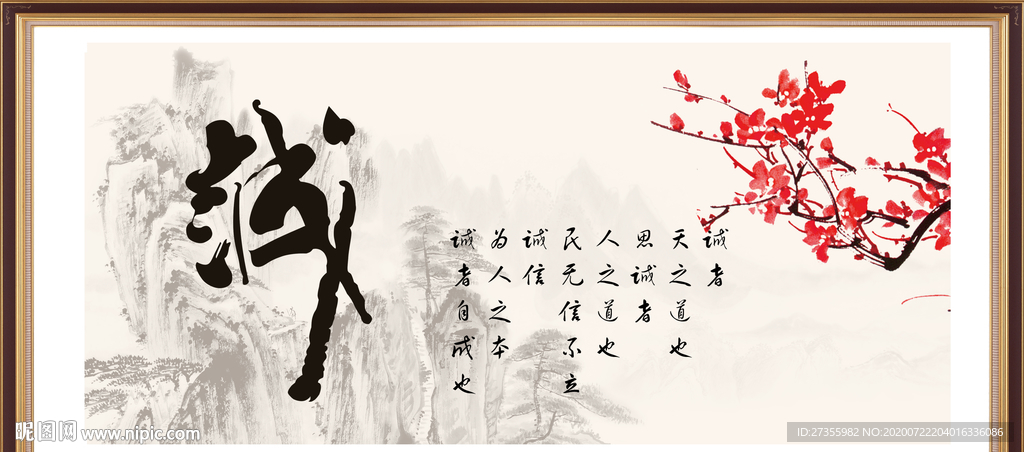 誠
诚者
天之道也
思诚者
人之道也
民无信不立
诚信
为人之本
诚者自成也
昵图网 www.nipic.com
ID:27355982 NO:20200722204016336086